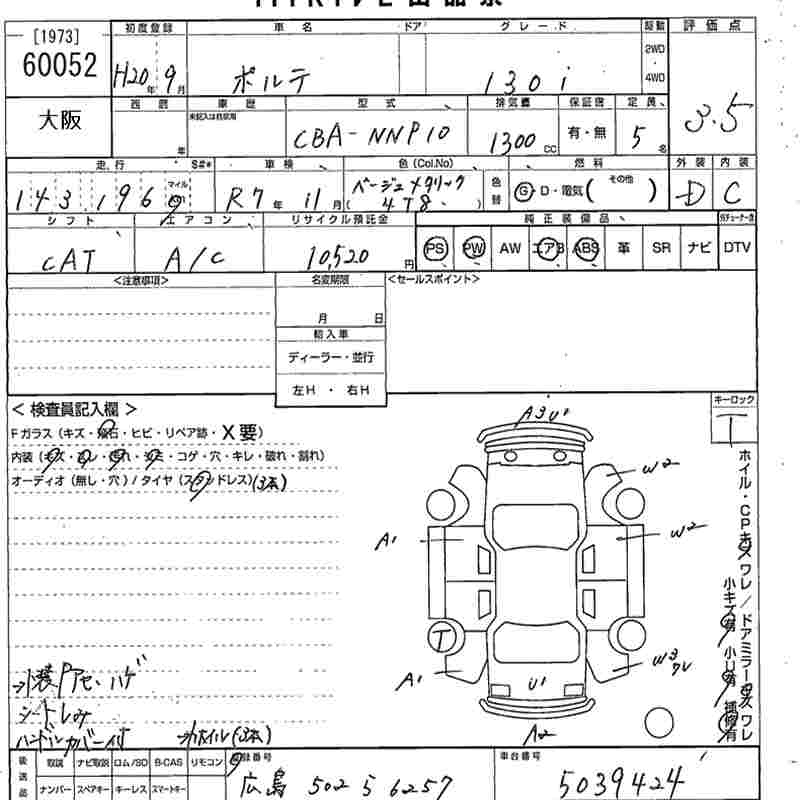 [1973]
60052
大阪
初度登録 車名 ドア グレード 駆動 評価点
H20年 9月 ポルテ 130i 2WD 4WD 3.5
車歴 型式 排気量 保証書 定員
年 CBA-NNP10 1300 CC 有・無 5名
走行 S#* 車検 色(Col.No) 燃料 外装 内装
143,196 マイル R7年 11月 ベージュメタリック ( 4T8 ) 色替 G・D・電気( その他 ) D C
シフト エアコン リサイクル預託金 純正装備品
CAT A/C 10,520円 PS PW AW エアB ABS 革 SR ナビ DTV
<注意事項> 名変期限 <セールスポイント>
月 日
輸入車
ディーラー・並行
左H ・ 右H
< 検査員記入欄 > キーロック
T
Fガラス(キズ・飛石・ヒビ・リペア跡・X要)
内装(キズ・コゲ・穴・キレ・破れ・割れ)
オーディオ(無し・穴)/タイヤ(スタッドレス)(3本)
A3 U1
W2
W2
A1
T
W3 ワレ
A1
U1
A2
ホイル・CPキズワレ/ドアミラーキズワレ
小キズ有 小U有 補修有
シートしみ
ハンドルカバー付 ホイル(3本)
後送品 取説 ナビ取説 ロム/SD B-CAS リモコン 登録番号 車台番号
ナンバー スペアキー キーレス スマートキー 広島 502 5 6257 5039424